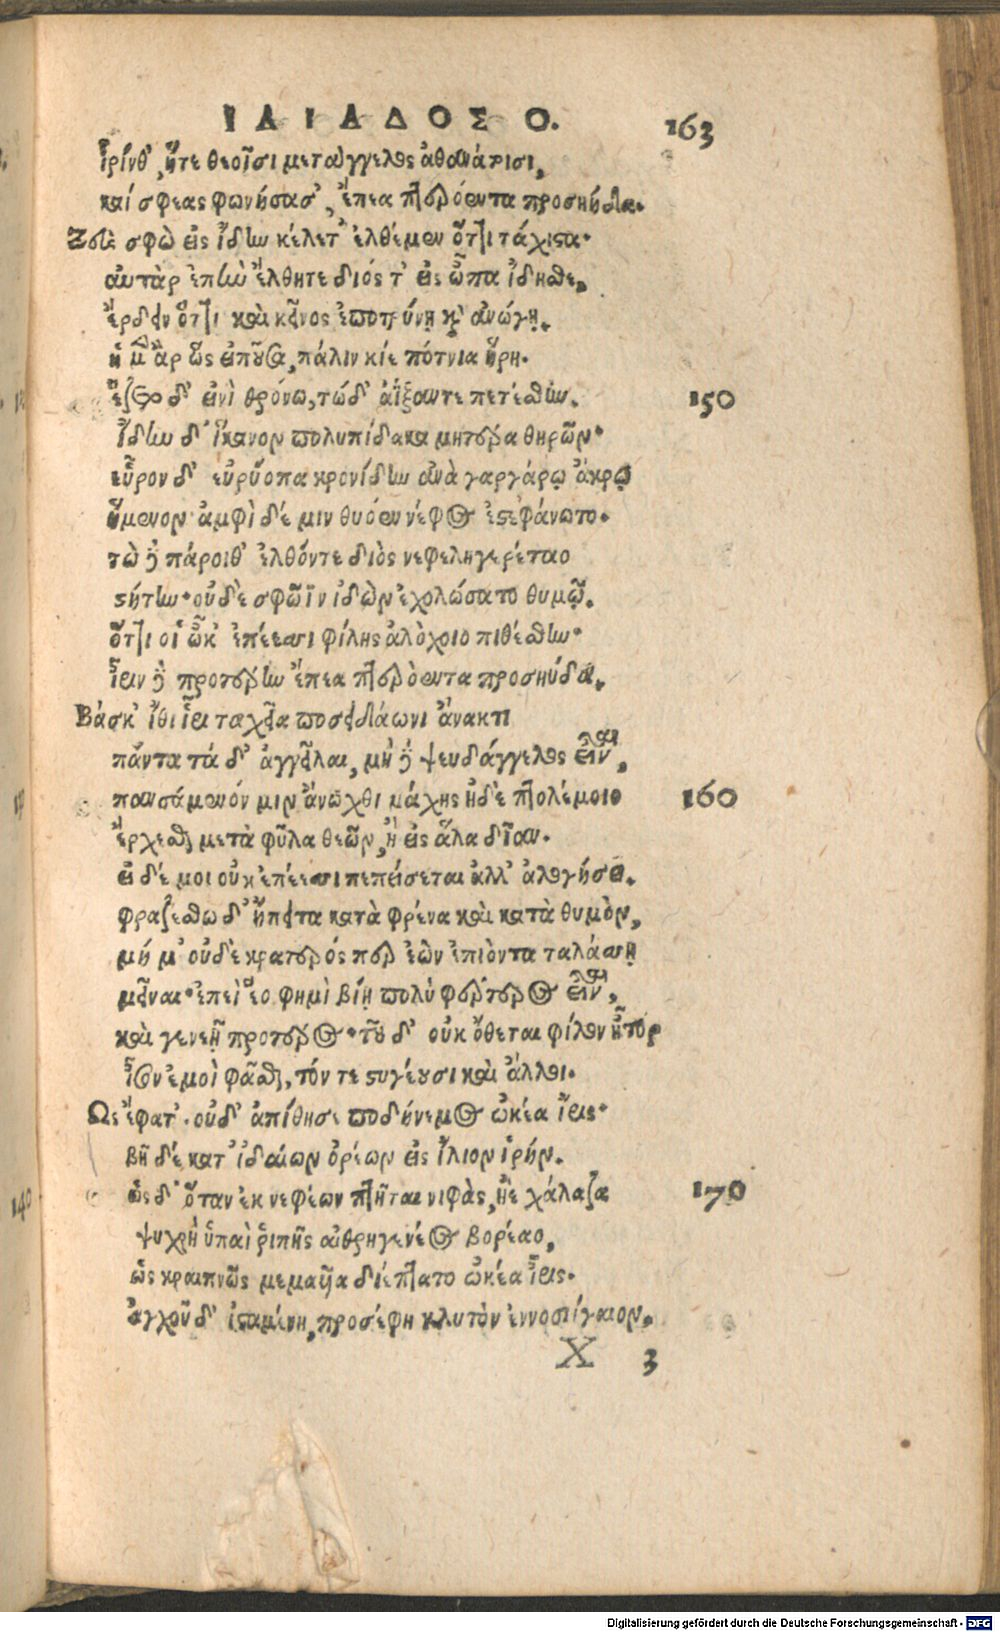 ΙΛΙΑΔΟΣ Ο. 163
ἶρίνθ', ἥτε θεοῖσι μετάγγελος ἀθανάτοισι,
καί σφεας φωνήσασ', ἔπεα πτερόεντα προσηύδα.
Ζεὺς σφὼ εἰς ἴδην κέλετ' ἐλθέμεν ὅττι τάχιστα·
αὐτὰρ ἐπὴν ἔλθητε διός τ' εἰς ὦπα ἴδησθε,
ἔρδειν ὅττι καὶ κεῖνος ἐποτρύνῃ καὶ ἀνώγῃ.
ἡ μὲν ἂρ ὣς εἰποῦσα, πάλιν κίε πότνια ἥρη.
ἕζετο δ' εἰνὶ θρόνω, τώδ' ἀΐξαντε πετέσθην.
150
ἴδην δ' ἵκανον πολυπίδακα μητέρα θηρῶν·
εὗρον δ' εὐρύοπα κρονίδην ἀνὰ γαργάρῳ ἄκρῳ
ἥμενον· ἀμφὶ δέ μιν θυόεν νέφος ἐστεφάνωτο.
τὼ δὲ πάροιθ' ἐλθόντε διὸς νεφεληγερέταο
στήτην· οὐδὲ σφῶϊν ἰδὼν ἐχολώσατο θυμῷ.
ὅττι οἱ ὦκ' ἐπέεσσι φίλης ἀλόχοιο πιθέσθην·
ἶριν δὲ προτέρην ἔπεα πτερόεντα προσηύδα.
Βάσκ' ἴθι ἶρι ταχεῖα ποσειδάωνι ἄνακτι
πάντα τά δ' ἀγγεῖλαι, μὴ δὲ ψευδάγγελος εἶναι,
παυσάμενόν μιν ἄνωχθι μάχης ἠδὲ πτολέμοιο
160
ἔρχεσθαι μετὰ φῦλα θεῶν, ἢ εἰς ἅλα δῖαν.
εἰ δέ μοι οὐκ ἐπέεσσι πεπείσεται ἀλλ' ἀλογήσει.
φραζέσθω δ' ἤπειτα κατὰ φρένα καὶ κατὰ θυμὸν,
μή μ' οὐδὲ κρατερός περ ἐὼν ἐπιόντα ταλάσσῃ
μεῖναι· ἐπεὶ ἕο φημὶ βίῃ πολὺ φέρτερος εἶναι,
καὶ γενεῇ πρότερος· τοῦ δ' οὐκ ὄθεται φίλον ἦτορ
ἶσον ἐμοὶ φᾶσθαι, τόν τε στυγέουσι καὶ ἄλλοι.
Ὣς ἔφατ'. οὐδ' ἀπίθησε ποδήνεμος ὠκέα ἶρις·
βῆ δέ κατ' ἰδαίων ὀρέων εἰς ἴλιον ἱρήν.
ὡς δ' ὅταν ἐκ νεφέων πτῆται νιφὰς, ἠὲ χάλαζα
170
ψυχρὴ ὑπαὶ ῥιπῆς αἰθρηγενέος βορέαο,
ὣς κραιπνῶς μεμαυῖα διέπτατο ὠκέα ἶρις.
ἀγχοῦ δ' ἱσταμένη, προσέφη κλυτὸν ἐννοσίγαιον.
X 3
140
Digitalisierung gefördert durch die Deutsche Forschungsgemeinschaft - DFG